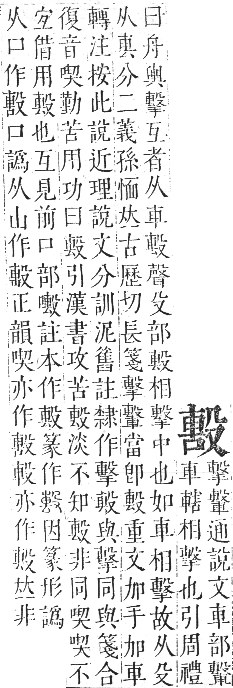 毄
擊轚通說文車部轚
車轄相擊也引周禮
曰舟輿擊互者从車毄聲殳部毄相擊中也如車相擊故从殳
从軎分二義孫愐竝古歷切長箋擊轚當卽毄重文加手加車
轉注按此說近理說文分訓泥舊註隸作擊毄與擊同與箋合
復音喫勤苦用功曰毄引漢書攻苦毄淡不知毄非同喫喫不
宐借用毄也互見前口部註本作毄篆作因篆形譌
从口作毄口譌从山作毄正韻喫亦作毄毄亦作毄竝非